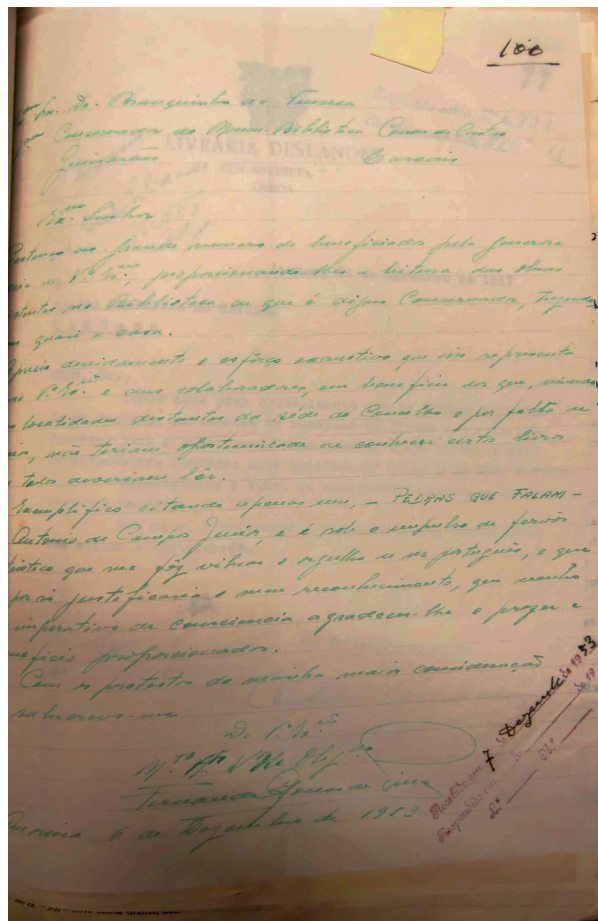 100
Sr. Dr. Branquinho da Fonseca
Conservador do Museu-Biblioteca Conde de Castro
Guimarães Cascais
LIVRARIA DESLANDES
LISBOA
Exmo. Senhor
ao grande numero de beneficiados pela generosa
de V. Exa., proporcionando-lhes a leitura das obras
na Biblioteca de que é digno Conservador, trazendo
quasi a casa.
devidamente o esforço exaustivo que isso representa
V. Exas. e seus colaboradores, em beneficio dos que, vivendo
localidades distantes da séde do Concelho e por falta de
, não teriam oportunidade de conhecer certos livros
todos deveriam lêr.
Exemplifico citando apenas um, — PEDRAS QUE FALAM —
Antonio de Campos Junior, e é sob o impulso de fervôr
que me fáz vibrar o orgulho de ser português, e que
por si justificaria o meu reconhecimento, que venho
imperativo de consciencia agradecer-lhe o prazer e
proporcionados.
Com os protestos da minha maior consideração
subscrevo-me
De V. Exas.
Mto. Atto. Vdor. e Obgdo.
Fernando de Lima
6 de Dezembro de 1953
Recebido em 7 de Dezembro de 1953
Respondido em de de 19
L.º N.º